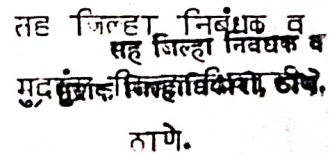 तह जिल्हा निबंधक व
सह जिल्हा निबंधक व
मुद्रांक जिल्हाधिकारी, ठाणे.
ठाणे.